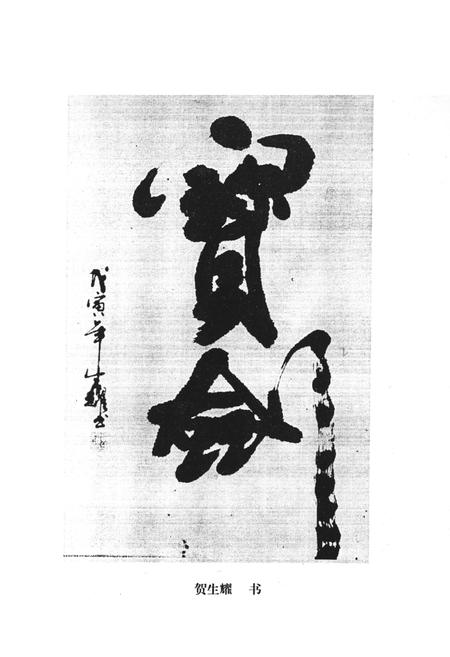 寳劍
戊寅年生耀书
贺生耀 书